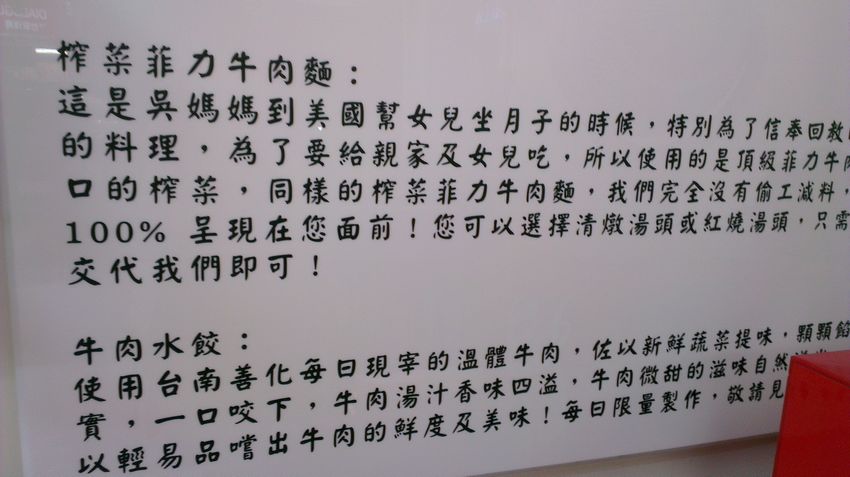 榨菜菲力牛肉麵：
這是吳媽媽到美國幫女兒坐月子的時候，特別為了信奉回教
的料理，為了要給親家及女兒吃，所以使用的是頂級菲力牛肉
口的榨菜，同樣的榨菜菲力牛肉麵，我們完全沒有偷工減料，
100% 呈現在您面前！您可以選擇清燉湯頭或紅燒湯頭，只需
交代我們即可！
牛肉水餃：
使用台南善化每日現宰的溫體牛肉，佐以新鮮蔬菜提味，顆顆餡
實，一口咬下，牛肉湯汁香味四溢，牛肉微甜的滋味自然
以輕易品嚐出牛肉的鮮度及美味！每日限量製作，敬請見